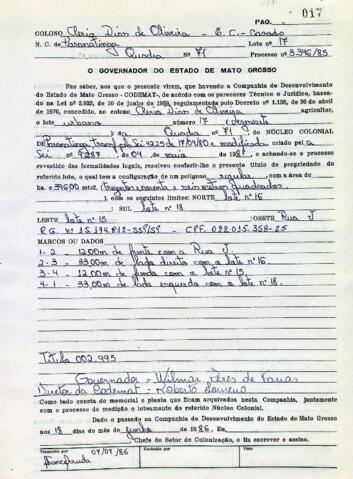 PAG. 017
COLONO Cleria Dias de Oliveira - E. C. - Casado
N. C. de Paranatinga Lote nº 17
Quadra nº 71 Processo nº 3.346/85
O GOVERNADOR DO ESTADO DE MATO GROSSO
Faz saber, aos que a presente virem, que havendo a Companhia de Desenvolvimento
do Estado de Mato Grosso - CODEMAT-, de acordo com os pareceres Técnico e Jurídico, basea-
do na Lei nº 2.933, de 10 de junho de 1969, regulamentada pelo Decreto nº 1.138, de 30 de abril
de 1970, concedido, ao colono Cleria Dias de Oliveira agricultor,
o lote urbano número 17 (dezessete
) da Quadra nº 71 do NÚCLEO COLONIAL
DE Paranatinga, transf. pela Lei 4225 de modificada criado pela
Lei nº 9287 de 04 de maio de 198, e achando-se o processo
revestido das formalidades legais, resolveu conferir-lhe o presente título de propriedade do
referido lote, o qual tem a configuração de um polígono regular com a área de
ha. 396,00 mts2, (trezentos e noventa e seis metros quadrados
), com os seguintes limites: NORTE lote nº 16
: SUL lote nº 18
LESTE lote nº 15 :OESTE Rua J
R.G. nº 15.194.812-SSP/SP - CPF. 022.015.358-25
MARCOS OU DADOS
1-2 - 12,00m de frente com a Rua J
2-3 - 33,00m de lado direito com o lote nº 16.
3-4 - 12,00m de fundo com o lote nº 15.
4-1 - 33,00m de lado esquerdo com o lote nº 18.
Título 002.995
Governador = Wilmar Peres de Farias
Diretor da Codemat = Roberto Loureiro
Como tudo consta do memorial e planta que ficam arquivados nesta Companhia, juntamente
com o processo de medição e loteamento do referido Núcleo Colonial.
Dado e passado na Companhia de Desenvolvimento do Estado de Mato Grosso
aos 18 dias do mês de junho de 1986, Eu,
Chefe do Setor de Colonização, o fiz escrever e assino.
Transcrito por 07/07/86
Conferido por
Visto